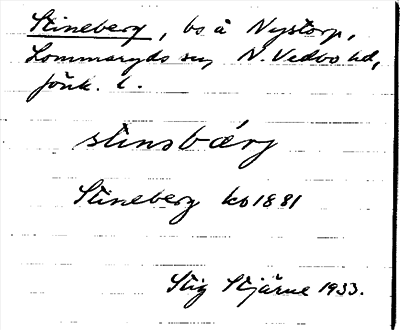 Stineberg, bs å Nystorp,
Lommaryds sn, N. Vedbo hd,
Jönk. l.
stinsbærj
Stineberg kb 1881
Stig Stjärne 1933.